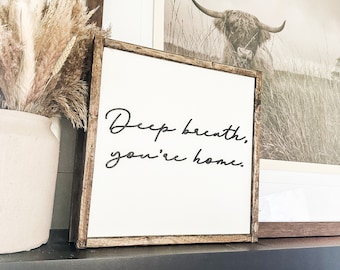 Deep breath,
you're home.